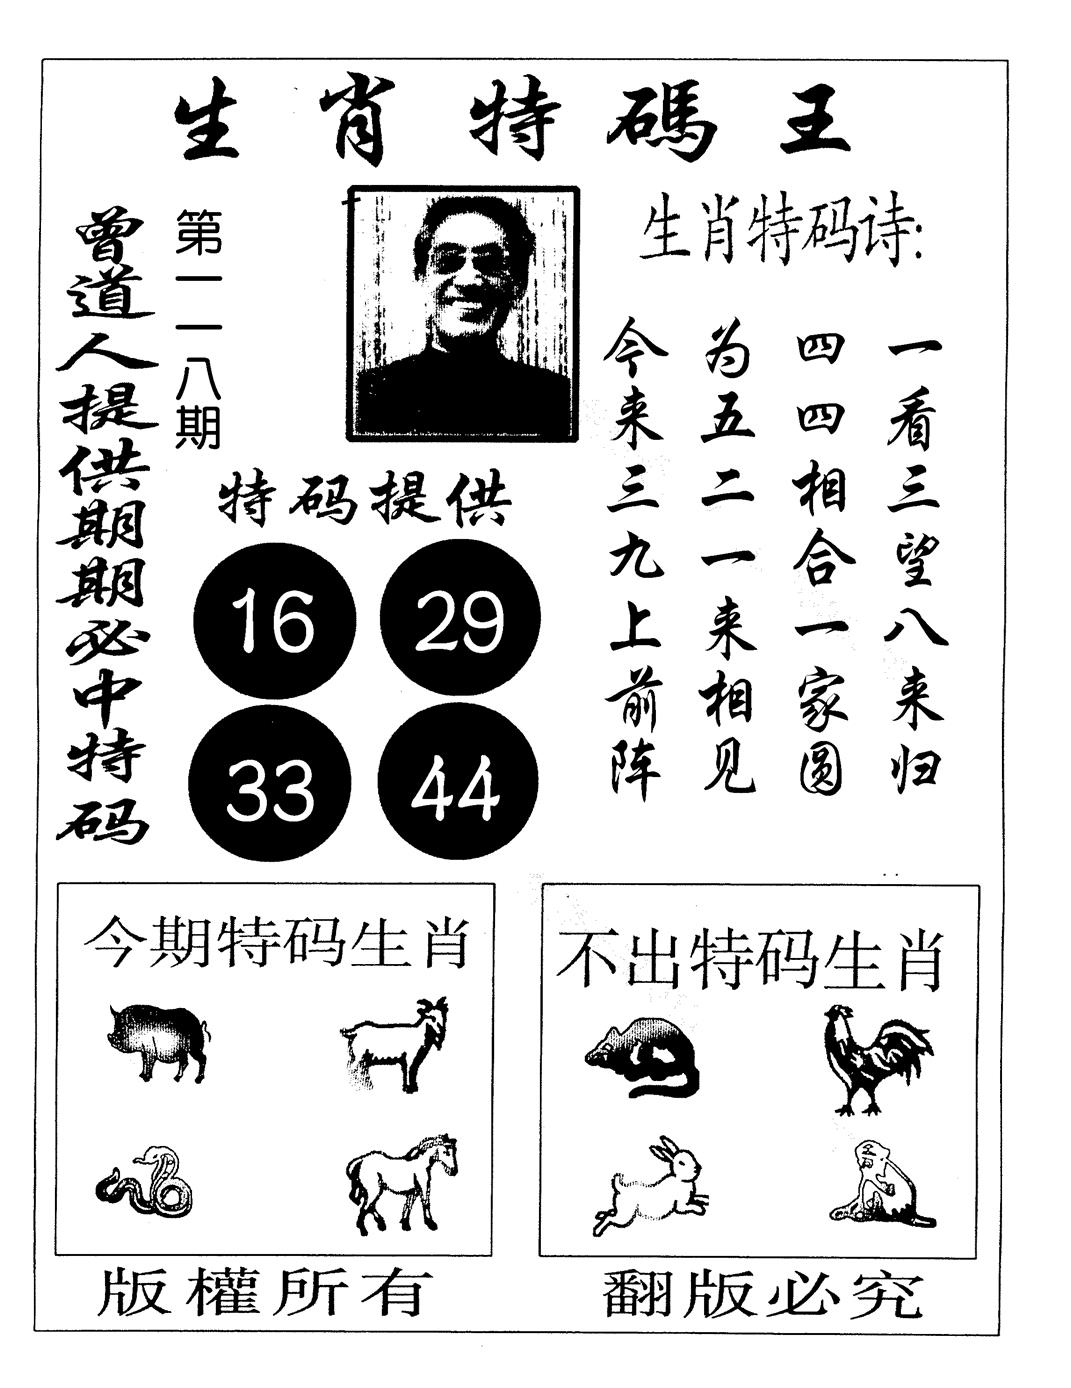 生肖特碼王
曾道人提供期期必中特码
第一一八期
生肖特码诗:
一看三望八来归
四四相合一家圆
为五二一来相见
今来三九上前阵
特码提供
16 29
33 44
今期特码生肖
不出特码生肖
版權所有
翻版必究